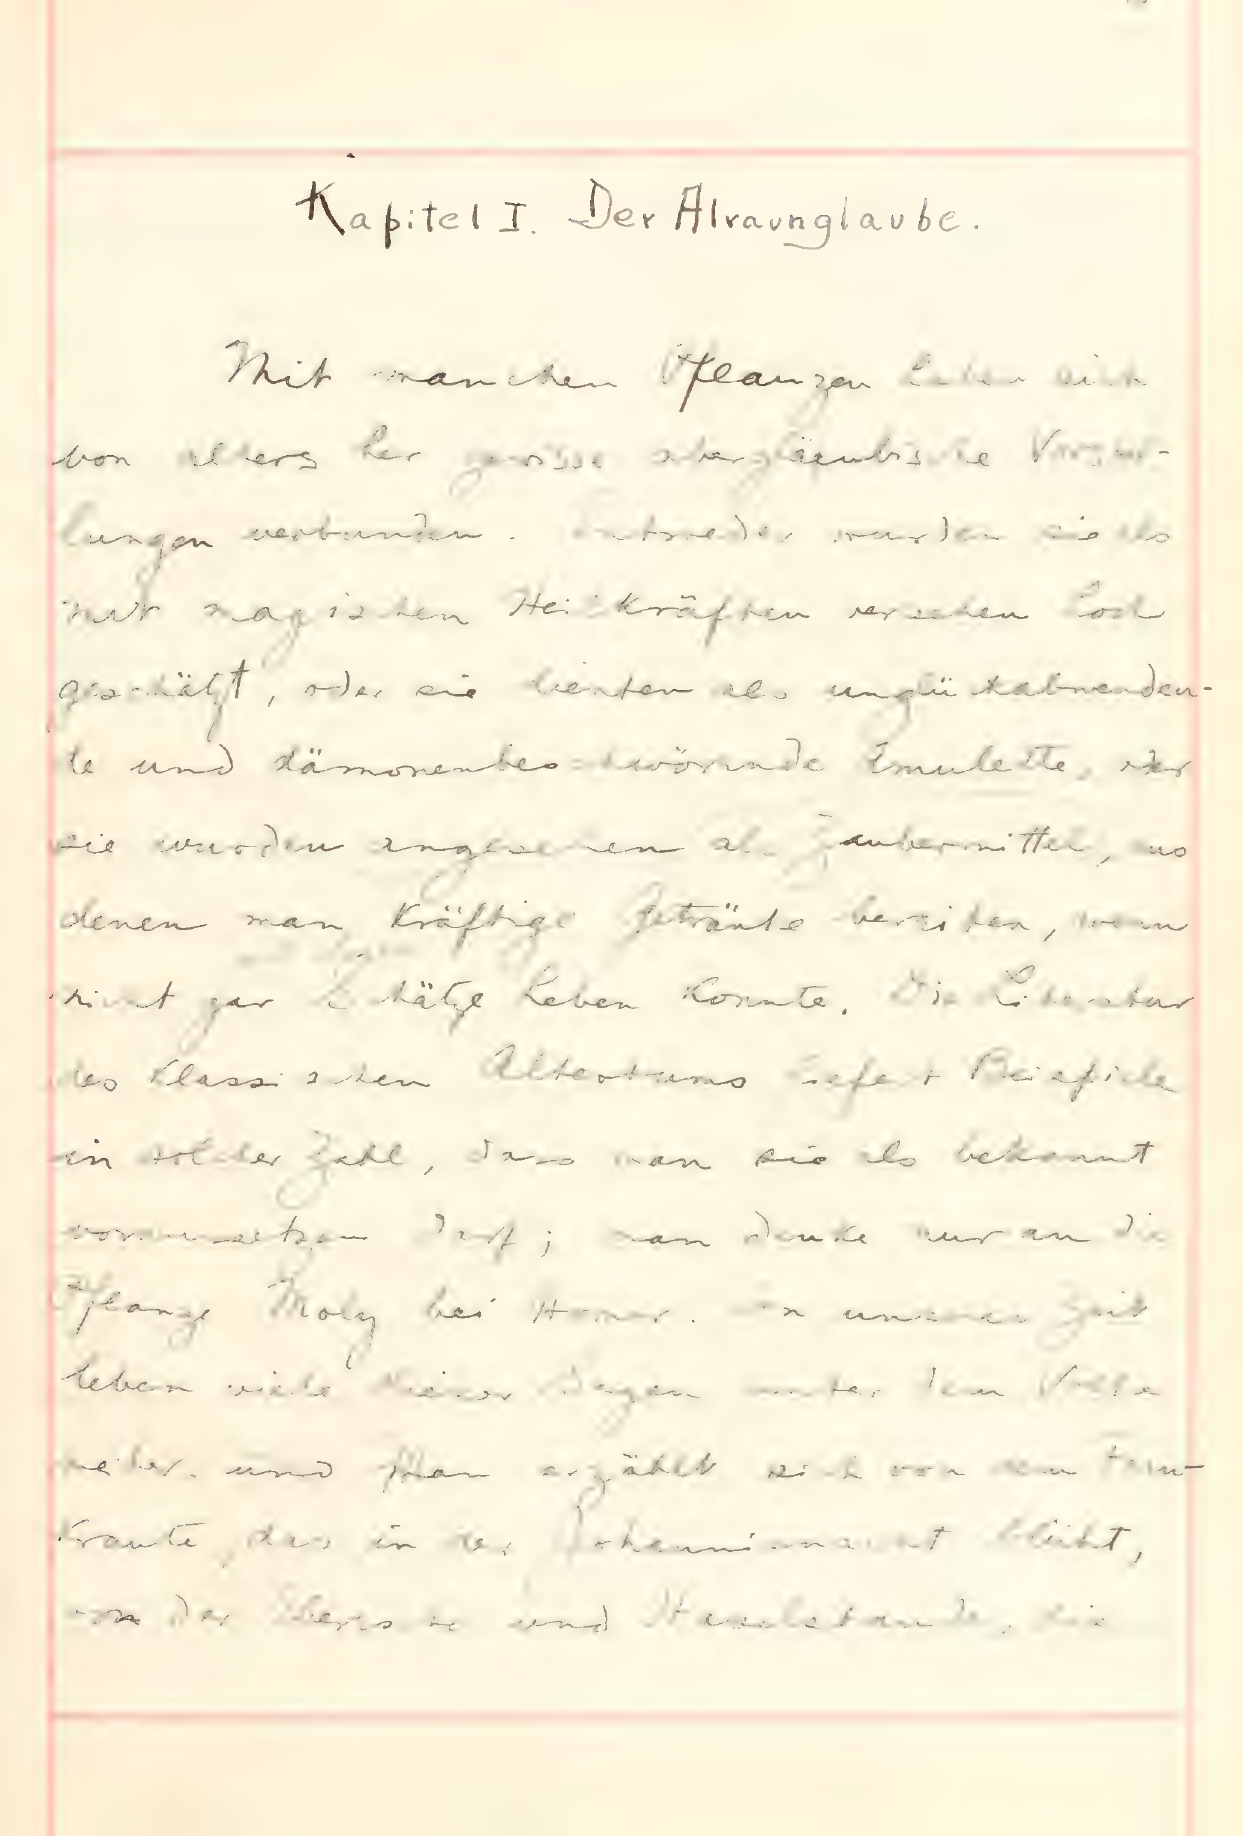 Kapitel I. Der Alraunglaube.
Mit manchen Pflanzen haben sich
von alters her gewisse abergläubische Vorstel-
lungen verbunden. Entweder wurden sie als
mit magischen Heilkräften versehen hoch
geschätzt, oder sie dienten als unglückabwenden-
de und dämonenbeschwörende Amulette, oder
sie wurden angesehen als Zaubermittel, aus
denen man kräftige Getränke bereiten, wenn
nicht gar Schätze heben konnte. Die Literatur
des klassischen Altertums liefert Beispiele
in solcher Zahl, dass man sie als bekannt
voraussetzen darf; man denke nur an die
Pflanze Moly bei Homer. In unserer Zeit
leben viele dieser Sagen unter dem Volke
weiter. und Man erzählt sich von dem Farn-
kraute, das in der Johannisnacht blüht,
von der Eberesche und Haselstaude, die